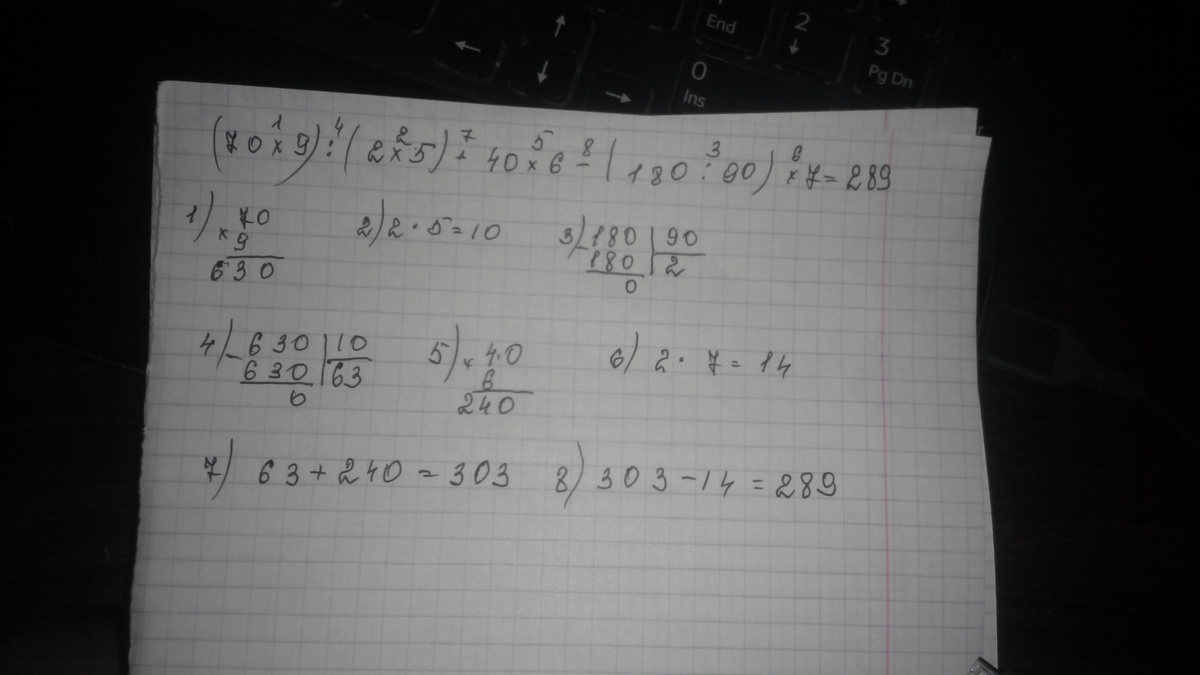 End
2
3
Pg Dn
0
Ins
1 4 2 7 5 8 3 6
(70 x 9) : (2 x 5) + 40 x 6 - (180 : 90) x 7 = 289
1) x 70
9
630
2) 2 · 5 = 10
3) - 180 | 90
180 | 2
0
4) - 630 | 10
630 | 63
0
5) x 4.0
6
240
6) 2 · 7 = 14
7) 63 + 240 = 303
8) 303 - 14 = 289